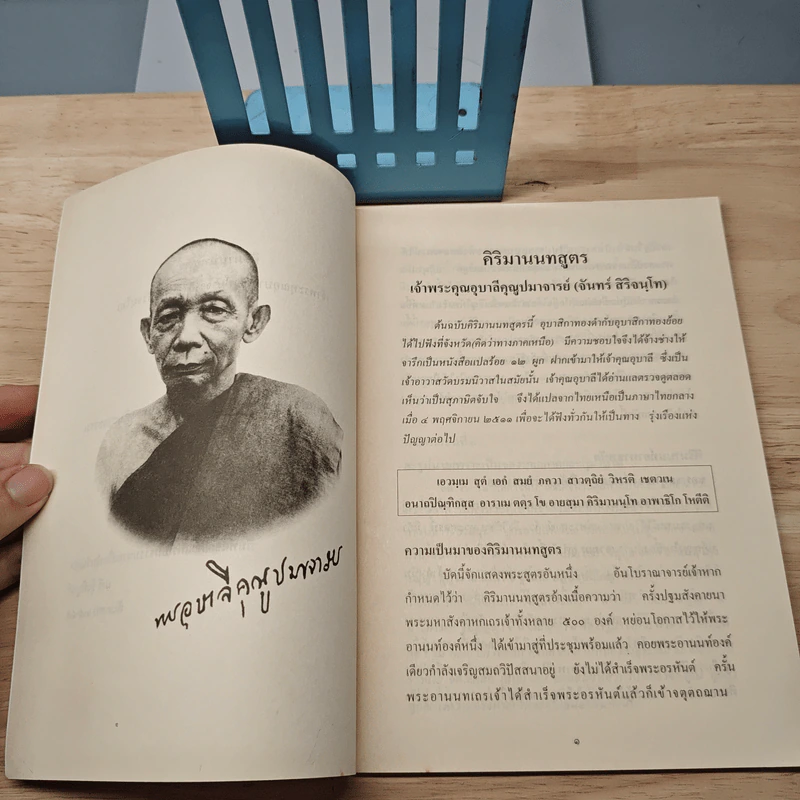 พระอุบาลีคุณูปมาจารย์
คิริมานนทสูตร
เจ้าพระคุณอุบาลีคุณูปมาจารย์ (จันทร์ สิริจนฺโท)
ต้นฉบับคิริมานนทสูตรนี้ อุบาสิกาทองดำกับอุบาสิกาทองย้อย
ได้ไปฟังที่จังหวัด(คิดว่าทางภาคเหนือ) มีความชอบใจจึงได้จ้างช่างให้
จารึกเป็นหนังสือแปลร้อย ๑๒ ผูก ฝากเข้ามาให้เจ้าคุณอุบาลี ซึ่งเป็น
เจ้าอาวาสวัดบรมนิวาสในสมัยนั้น เจ้าคุณอุบาลีได้อ่านแลตรวจดูตลอด
เห็นว่าเป็นสุภาษิตจับใจ จึงได้แปลจากไทยเหนือเป็นภาษาไทยกลาง
เมื่อ ๔ พฤศจิกายน ๒๕๑๑ เพื่อจะได้ฟังทั่วกันให้เป็นทาง รุ่งเรืองแห่ง
ปัญญาต่อไป
เอวมฺเม สุตํ เอกํ สมยํ ภควา สาวตฺถิยํ วิหรติ เชตวเน
อนาถปิณฺฑิกสฺส อาราเม ตตฺร โข อายสฺมา คิริมานนฺโท อาพาธิโก โหตีติ
ความเป็นมาของคิริมานนทสูตร
บัดนี้จักแสดงพระสูตรอันหนึ่ง อันโบราณาจารย์เจ้าหาก
กำหนดไว้ว่า คิริมานนทสูตรอ้างเนื้อความว่า ครั้งปฐมสังคายนา
พระมหาสังคาหกเถรเจ้าทั้งหลาย ๕๐๐ องค์ หย่อนโอกาสไว้ให้พระ
อานนท์องค์หนึ่ง ได้เข้ามาสู่ที่ประชุมพร้อมแล้ว คอยพระอานนท์องค์
เดียวกำลังเจริญสมถวิปัสสนาอยู่ ยังไม่ได้สำเร็จพระอรหันต์ ครั้น
พระอานนทเถรเจ้าได้สำเร็จพระอรหันต์แล้วก็เข้าจตุตถฌาน
๑